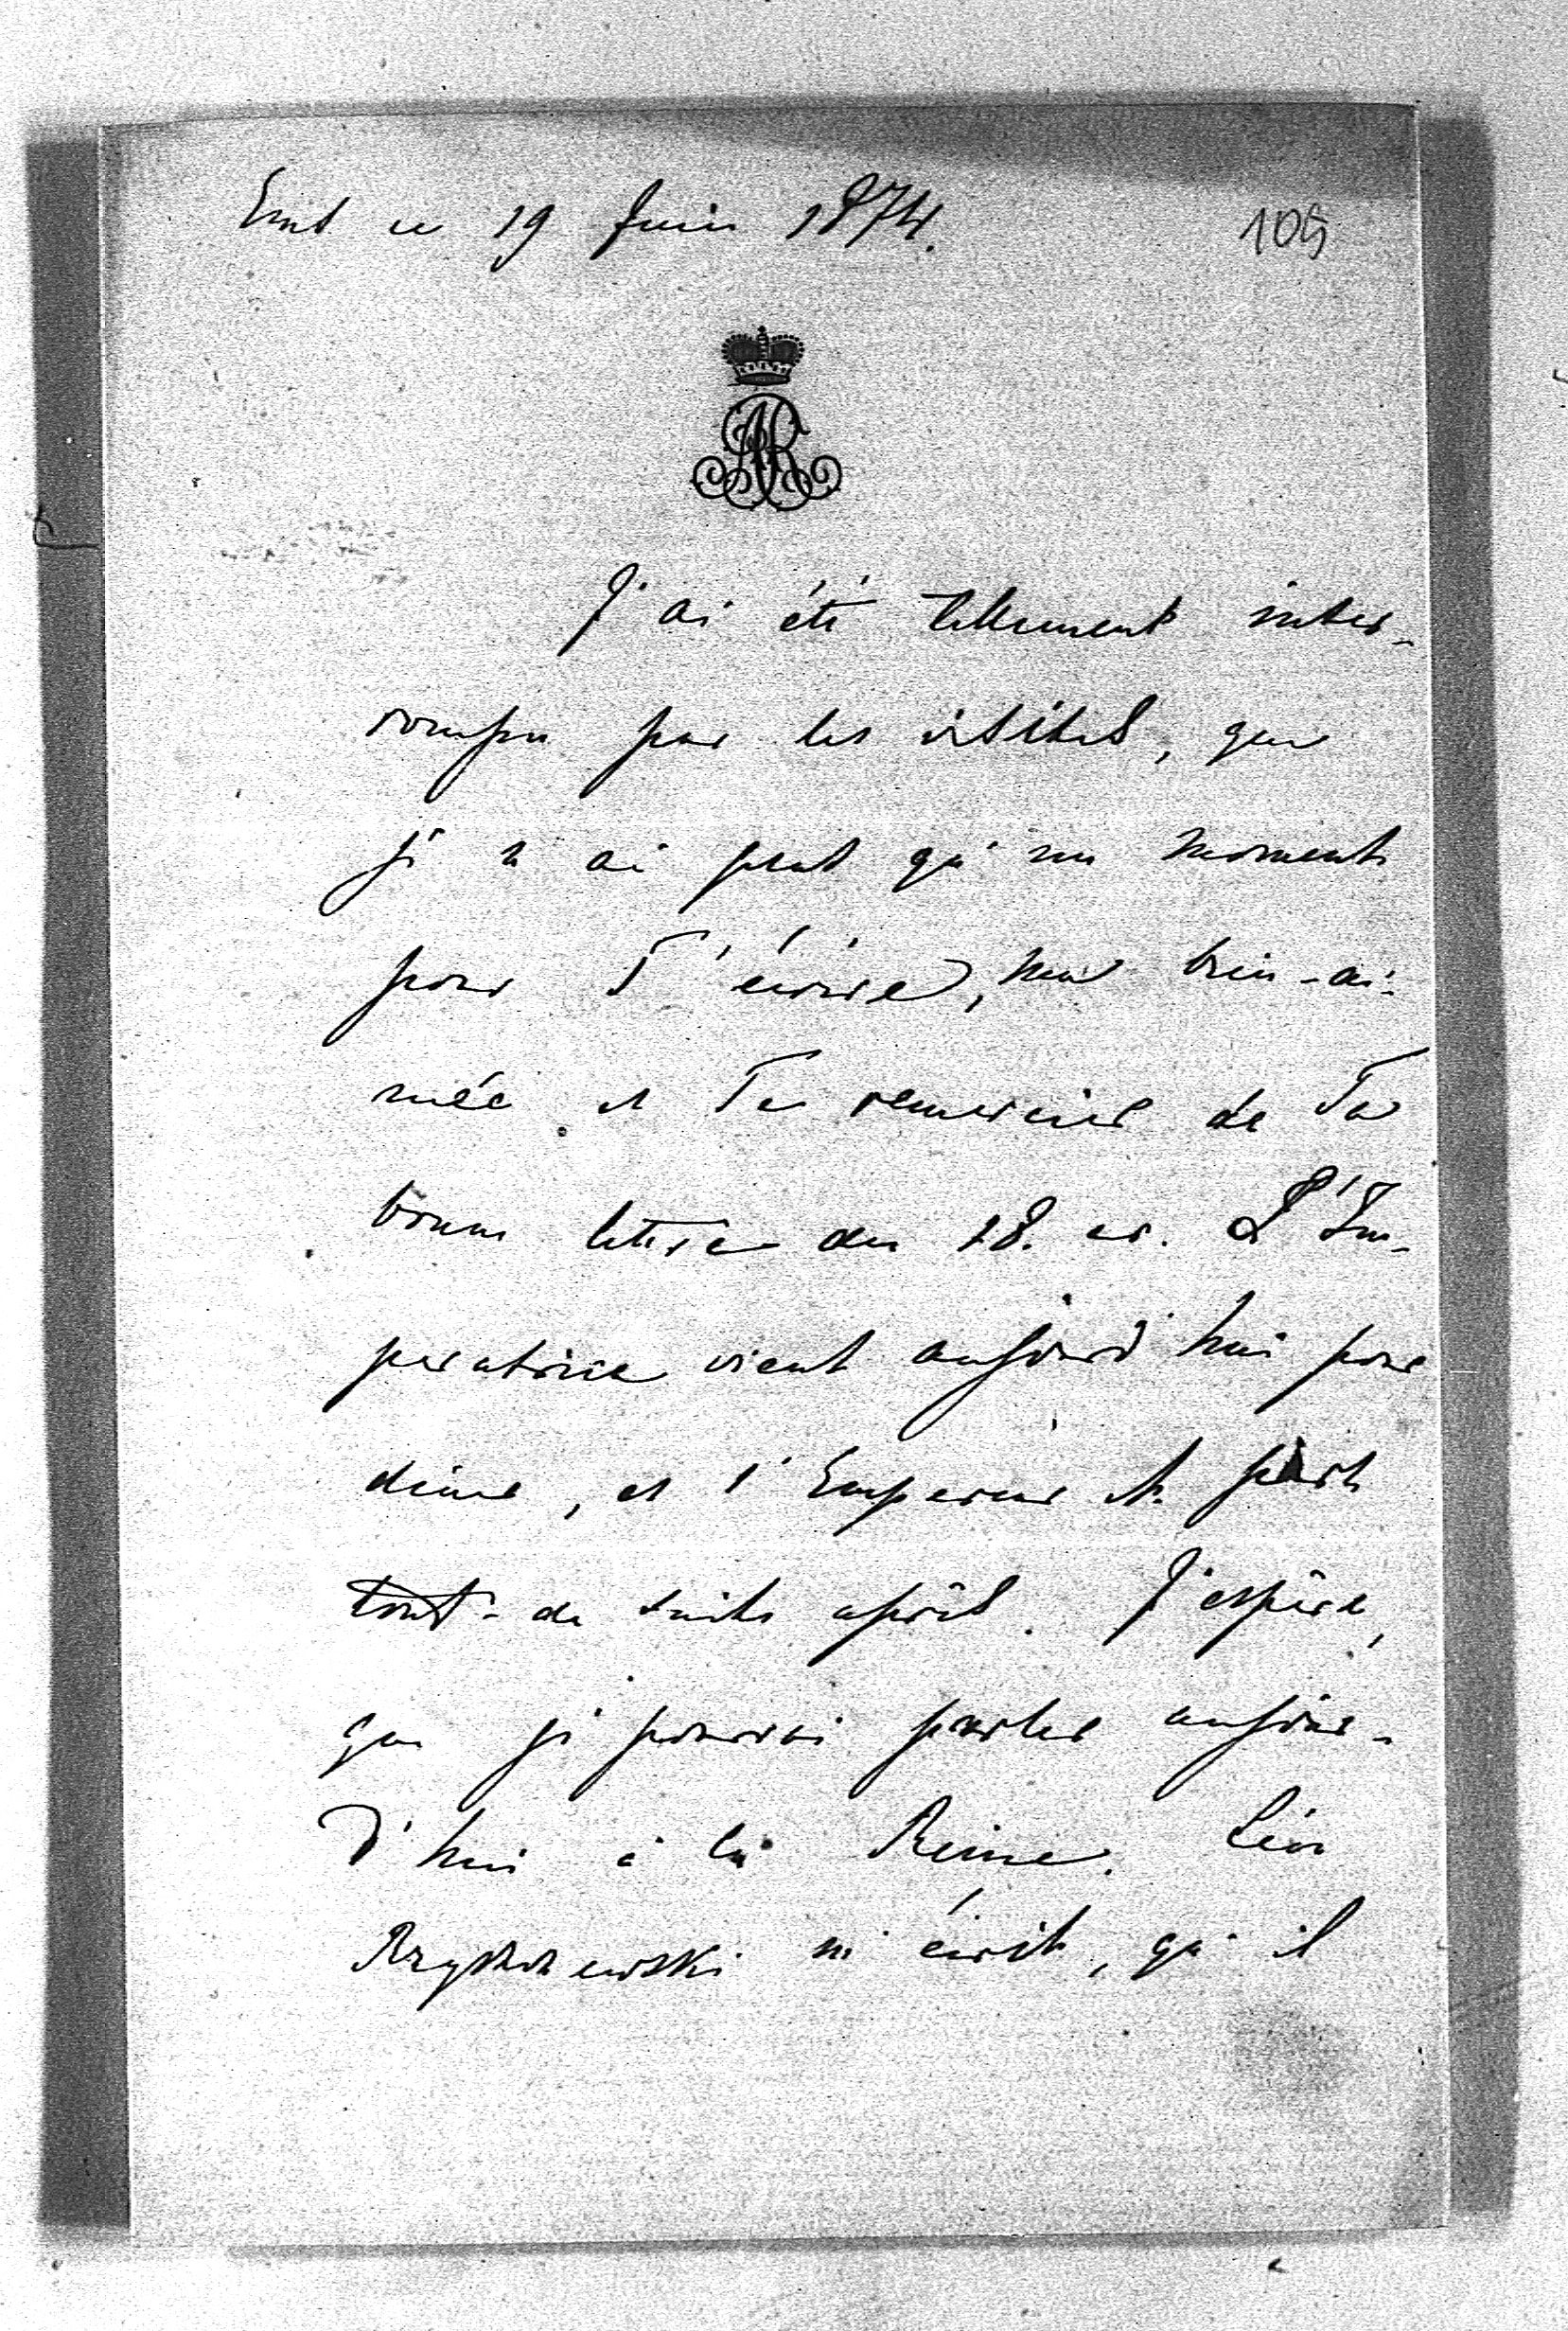 Ems ce 19 Juin 1874.
105
AR
J'ai été tellement inter-
rompu par les visites, que
je n'ai plus qu'un moment
pour T'écrire, ma bien-ai-
mée et Te remercier de Ta
bonne lettre du 18. cr. L'Im-
peratrice vient aujourd'hui pour
diner, et l'Empereur A. part
tout-de suite après. J'espère,
que je pourrai parler aujour-
d'hui à la Reine. Léon
m'écrit, qu'il